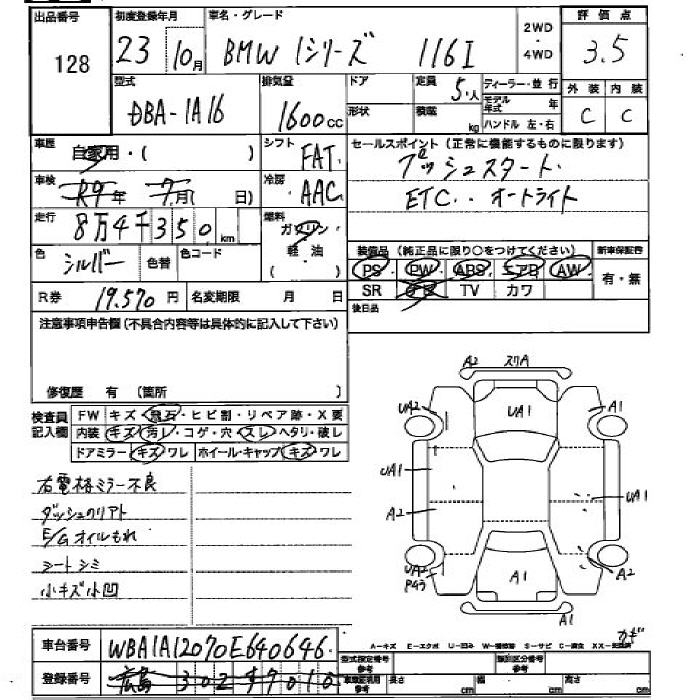 出品番号 初度登録年月 車名・グレード 2WD 評価点
128 23 10月 BMW 1シリーズ 116I ・4WD 3.5
型式 排気量 ドア 定員 5人 ディーラー・並行 外装 内装
DBA-1A16 1600cc 形状 積載 kg モデル年式 年 C C
ハンドル 左・右
車歴 自家用・( ) シフト FAT セールスポイント(正常に機能するものに限ります)
プッシュスタート
車検 R9年 7月( 日) 冷房 AAC ETC.. オートライト
走行 8万4千350km 燃料 ガソリン・軽油( )
装備品(純正品に限り○をつけてください) 新車保証書
色 シルバー 色替 色コード PS PW ABS エアB AW 有・無
R券 19.570円 名変期限 月 日 SR TV カワ
後日品
注意事項申告欄(不具合内容等は具体的に記入して下さい)
修復歴 有 (箇所 )
検査員記入欄 FW キズ・飛石・ヒビ割・リペア跡・X要
内装 キズ・汚レ・コゲ・穴・スレ・ヘタリ・破レ
ドアミラー キズ・ワレ ホイール・キャップ キズ・ワレ
A2 スリA
UA2 UA1 A1
UA1 UA1
A2
UA2 A1 A2
A1
右電格ミラー不良
ダッシュのリアト
E/Gオイルもれ
シートシミ
小キズ小凹
カギ
A-キズ E-エクボ U-凹み W-補修跡 S-サビ C-腐食 XX-交換済
車台番号 WBA1A12070E640646
型式指定番号 参考 類別区分番号 参考
登録番号 広島 302 長さ cm 幅 cm 高さ cm